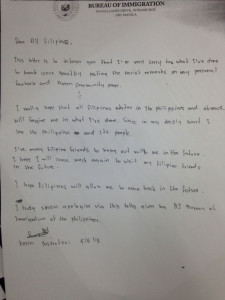 BUREAU OF IMMIGRATION
Dear All Filipinos,
This letter is to inform you that I'm very sorry for what I've done
to break your loyalty making the racist remarks on my personal
facebook and
I really hope that all Filipinos whether in the Philippines and abroad,
will forgive me in what I've done. Since in my deeply heart I
love the Philippines and its people.
I've many Filipino friends to hang out with me in the future.
I hope I will come back again to visit my Filipino friends
in the future.
I hope Filipinos will allow me to come back in the future.
I truly sincere apologize via this letter given by BI Bureau of
Immigration of the Philippines.